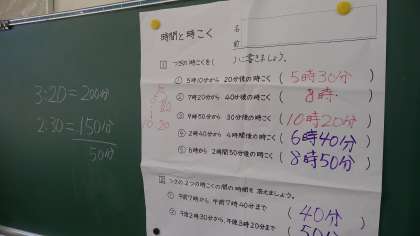 3:20 = 200分
2:30 = 150分
50分
10:20
時間と時こく
名
前
1 つぎの時こくを( )に書きましょう。
① 5時10分から 20分後の時こく ( 5時30分 )
② 7時20分から 40分後の時こく ( 8時 )
③ 9時50分から 30分後の時こく ( 10時20分 )
④ 2時40分から 4時間後の時こく ( 6時40分 )
⑤ 6時から 2時間50分後の時こく ( 8時50分 )
2 つぎの2つの時こくの間の時間を 答えましょう。
① 午前7時から 午前7時40分まで ( 40分 )
② 午後2時30分から、午後3時20分まで ( 50分